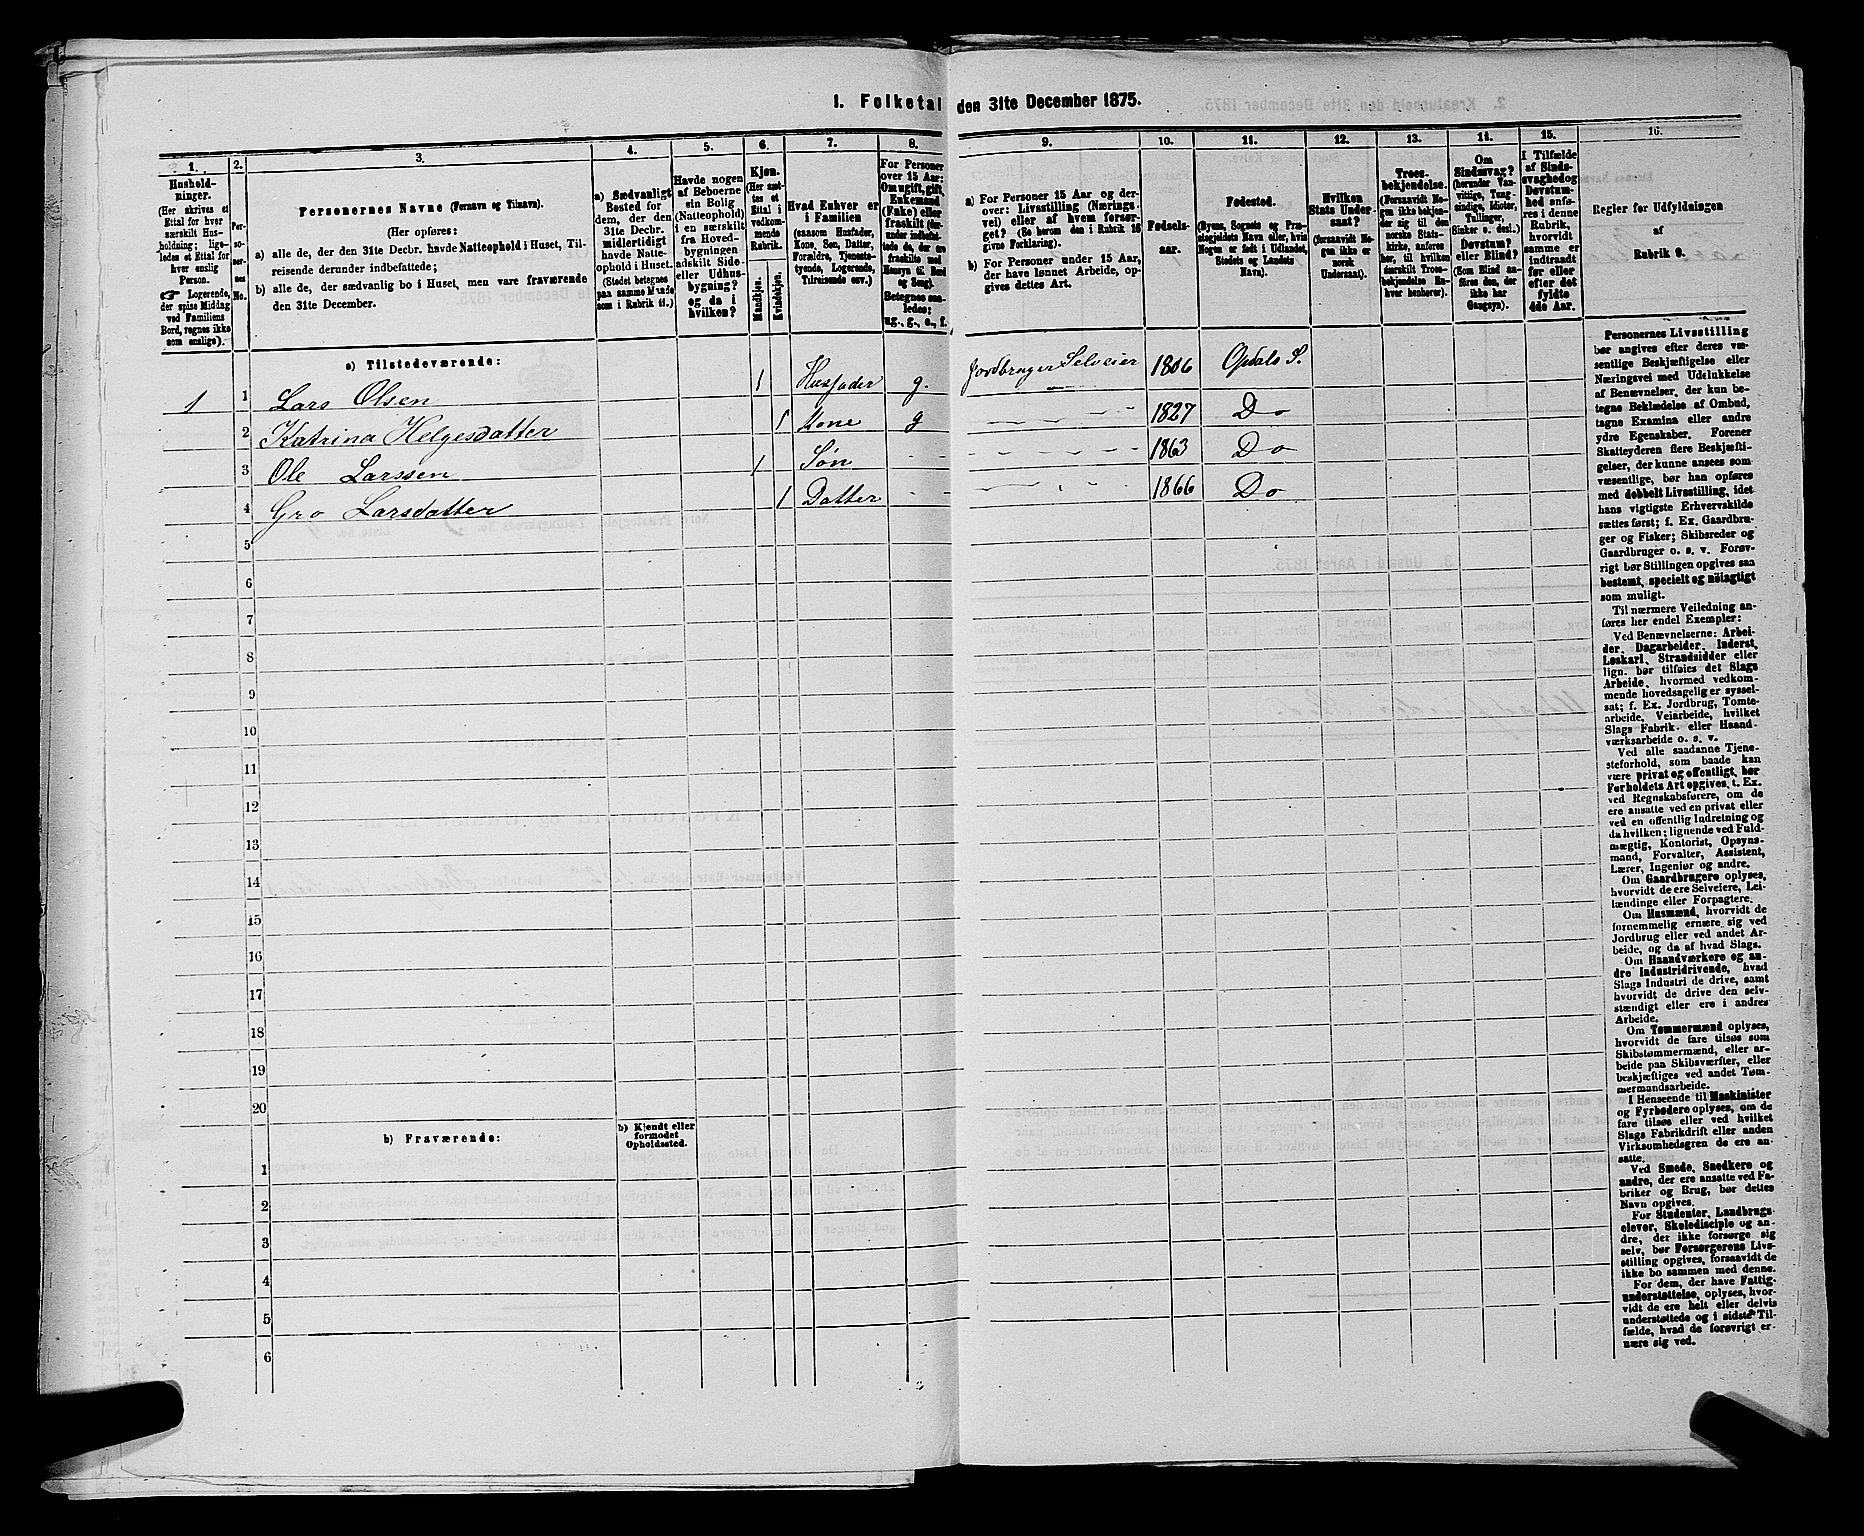 1. Folketal den 31te December 1875.
1.
Hushold-
ninger.
(Her skrives et
Ettal for hver
særskilt Hus-
holdning; lige-
ledes et Ettal for
hver enslig
Person.
☞ Logerende,
der spise Middag
ved Familiens
Bord, regnes ikke
som enslige).
2.
Per-
so-
ner-
nes
No.
3.
Personernes Navne (Fornavn og Tilnavn).
(Her opføres:
a) alle de, der den 31te Decbr. havde Natteophold i Huset, Til-
reisende derunder indbefattede;
b) alle de, der sædvanlig bo i Huset, men vare fraværende
den 31te December.
4.
a) Sædvanligt
Bosted for
dem, der den
31te Decbr.
midlertidigt
havde Natte-
ophold i Huset.
(Stedet betegnes
paa samme Maade
som i Rubrik 11.)
5.
Havde nogen
af Beboerne
sin Bolig
(Natteophold)
i en særskilt
fra Hoved-
bygningen
adskilt Side-
eller Udhus-
bygning?
og da i
hvilken?
6.
Kjøn.
(Her sæt-
tes et
Ettal i
vedkom-
mende
Rubrik.
Mandkjøn.
Kvindekjøn.
7.
Hvad Enhver er
i Familien
(saasom Husfader,
Kone, Søn, Datter,
Forældre, Tjeneste-
tyende, Logerende,
Tilreisende osv.)
8.
For Personer
over 15 Aar:
Om ugift, gift,
Enkemand
(Enke) eller
fraskilt (der-
under indbefat-
tede de, der ere
fraskilte med
Hensyn til Bord
og Seng).
Betegnes saa-
ledes:
ug., g., e., f.
9.
a) For Personer 15 Aar og der-
over: Livsstilling (Nærings-
vei) eller af hvem forsør-
get? (Se herom den i Rubrik 16
givne Forklaring).
b) For Personer under 15 Aar,
der have lønnet Arbeide, op-
gives dettes Art.
10.
Fødsels-
aar.
11.
Fødested.
(Byens, Sognets og Præ-
stegjeldets Navn eller, hvis
Nogen er født i Udlandet,
Stedets og Landets
Navn).
12.
Hvilken
Stats Under-
saat?
(forsaavidt No-
gen ikke er
norsk
Undersaat).
13.
Troes-
bekjendelse.
(Forsaavidt No-
gen ikke bekjen-
der sig til den
norske Stats-
kirke, anføres
her, til hvilken
særskilt Troes-
bekjendelse En-
hver henhører).
14.
Om
Sindssvag?
(herunder Van-
vittige, Tung-
sindige, Idioter,
Tullinger,
Sinker o. desl.).
Døvstum?
eller Blind?
(Som Blind an-
føres den, der
ikke har
Gangsyn).
15.
I Tilfælde
af Sinds-
svaghed og
Døvstum-
hed anfø-
res i denne
Rubrik,
hvorvidt
samme er
indtraadt
før eller
efter det
fyldte
4de Aar.
16.
Regler for Udfyldningen
af
Rubrik 9.
a) Tilstedeværende:
1 1 Lars Olsen 1 Husfader g. Jordbruger Selveier 1806 Opdals S.
2 Katrina Helgesdatter 1 Kone g 1827 Do
3 Ole Larssen 1 Søn - - 1863 Do
4 Gro Larsdatter 1 Datter - - 1866 Do
5
6
7
8
9
10
11
12
13
14
15
16
17
18
19
20
b) Fraværende:
b) Kjendt eller
formodet
Opholdssted.
1
2
3
4
5
6
Personernes Livsstilling
bør angives efter deres væ-
sentlige Beskjæftigelse eller
Næringsvei med Udelukkelse
af Benævnelser, der kun be-
tegne Beklædelse af Ombud,
tagne Examina eller andre
ydre Egenskaber. Forener
Skatteyderen flere Beskjæfti-
gelser, der kunne ansees som
væsentlige, bør han opføres
med dobbelt Livsstilling, idet
hans vigtigste Erhvervskilde
sættes først; f. Ex. Gaardbru-
ger og Fisker; Skibsreder og
Gaardbruger o. s. v. Forøv-
rigt bør Stillingen opgives saa
bestemt, specielt og nøiagtigt
som muligt.
Til nærmere Veiledning an-
føres her endel Exempler:
Ved Benævnelserne: Arbei-
der, Dagarbeider, Inderst,
Løskarl, Strandsidder eller
lign. bør tilføies det Slags
Arbeide, hvormed vedkom-
mende hovedsagelig er syssel-
sat; f. Ex. Jordbrug, Tomte-
arbeide, Veiarbeide, hvilket
Slags Fabrik- eller Haand-
værksarbeide o. s. v.
Ved alle saadanne Tjene-
steforhold, som baade kan
være privat og offentligt, bør
Forholdets Art opgives, t. Ex.
ved Regnskabsførere, om de
ere ansatte ved en privat eller
ved en offentlig Indretning og
da hvilken; lignende ved Fuld-
mægtig, Kontorist, Opsyns-
mand, Forvalter, Assistent,
Lærer, Ingeniør og andre.
Om Gaardbrugere oplyses,
hvorvidt de ere Selveiere, Lei-
lændinge eller Forpagtere.
Om Husmænd, hvorvidt de
fornemmelig ernære sig ved
Jordbrug eller ved andet Ar-
beide, og da af hvad Slags.
Om Haandværkere og an-
dre Industridrivende, hvad
Slags Industri de drive, samt
hvorvidt de drive den selv-
stændigt eller ere i andres
Arbeide.
Om Tømmermænd oplyses,
hvorvidt de fare tilsøs som
Skibstømmermænd, eller ar-
beide paa Skibsværfter, eller
beskjæftiges ved andet Tøm-
mermandsarbeide.
I Henseende til Maskinister
og Fyrbødere oplyses, om de
fare tilsøs eller ved hvilket
Slags Fabrikdrift eller anden
Virksomhedsgren de ere an-
satte.
Ved Smede, Snedkere og
andre, der ere ansatte ved Fa-
briker og Brug, bør dettes
Navn opgives.
For Studenter, Landbrugs-
elever, Skoledisciple og an-
dre, der ikke forsørge sig
selv, bør Forsørgerens Livs-
stilling opgives, forsaavidt de
ikke bo sammen med denne.
For dem, der have Fattig-
understøttelse, oplyses, hvor-
vidt de ere helt eller delvis
understøttede og i sidste Til-
fælde, hvad de forøvrigt er-
nære sig ved.